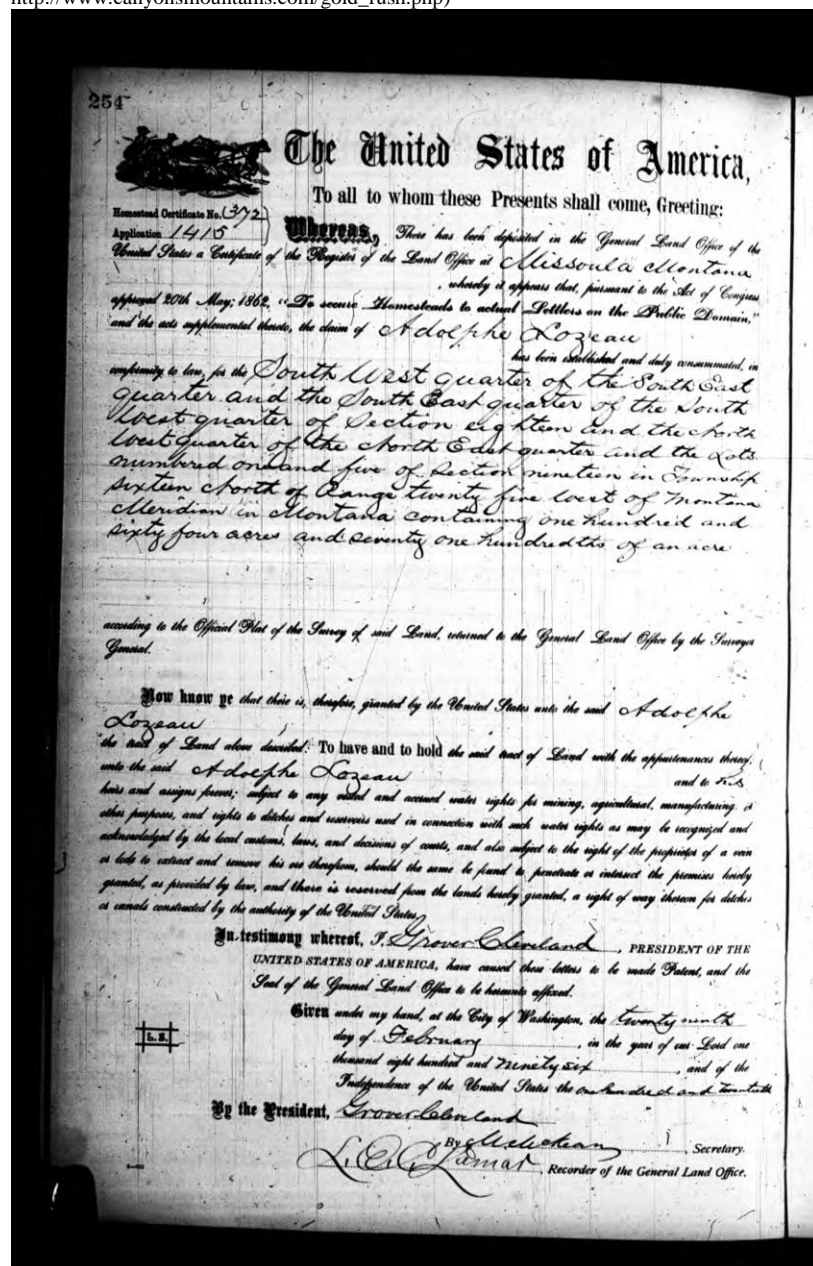 http://www.canyonsmountains.com/gold_rush.php)
254
The United States of America,
To all to whom these Presents shall come, Greeting:
Homestead Certificate No. 372
Application 1415
Whereas, There has been deposited in the General Land Office of the
United States a Certificate of the Register of the Land Office at Missoula Montana
, whereby it appears that, pursuant to the Act of Congress
approved 20th May, 1862, "To secure Homesteads to actual Settlers on the Public Domain,"
and the acts supplemental thereto, the claim of Adolphe Lozeau
has been established and duly consummated, in
conformity to law, for the South West quarter of the South East
quarter and the South East quarter of the South
West quarter of Section eighteen and the North
West quarter of the North East quarter and the Lots
numbered one and five of Section nineteen in Township
sixteen North of Range twenty five West of Montana
Meridian in Montana containing one hundred and
sixty four acres and seventy one hundredths of an acre
according to the Official Plat of the Survey of said Land, returned to the General Land Office by the Surveyor
General.
Now know ye that there is, therefore, granted by the United States unto the said Adolphe
Lozeau
the tract of Land above described: To have and to hold the said tract of Land with the appurtenances thereof,
unto the said Adolphe Lozeau and to his
heirs and assigns forever; subject to any vested and accrued water rights for mining, agricultural, manufacturing or
other purposes, and rights to ditches and reservoirs used in connection with such water rights as may be recognized and
acknowledged by the local customs, laws, and decisions of courts, and also subject to the right of the proprietor of a vein
or lode to extract and remove his ore therefrom, should the same be found to penetrate or intersect the premises hereby
granted, as provided by law, and there is reserved from the lands hereby granted, a right of way thereon for ditches
or canals constructed by the authority of the United States.
In testimony whereof, I, Grover Cleveland, PRESIDENT OF THE
UNITED STATES OF AMERICA, have caused these letters to be made Patent, and the
Seal of the General Land Office to be hereunto affixed.
Given under my hand, at the City of Washington, the twenty ninth
L. S.
day of February, in the year of our Lord one
thousand eight hundred and ninety six, and of the
Independence of the United States the one hundred and twentieth
By the President, Grover Cleveland
By M. McKean, Secretary.
L. Q. C. Lamar, Recorder of the General Land Office.